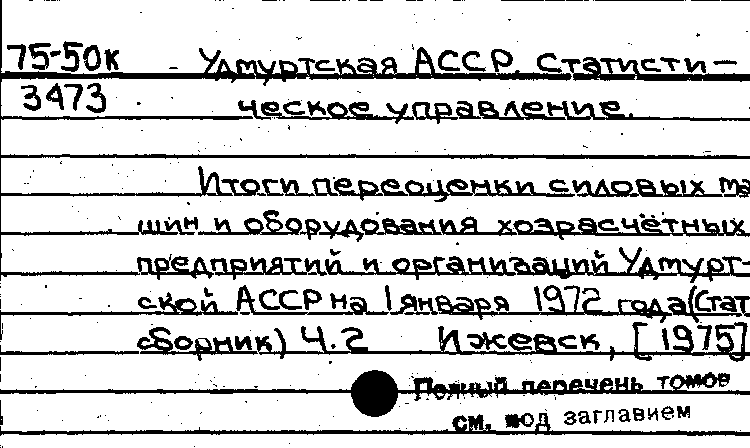 75-50к Удмуртская АССР. Статисти-
3473 ческое управление.
Итоги переоценки силовых ма
шин и оборудования хозрасчётных
предприятий и организаций Удмурт-
ской АССР на 1 января 1972 года (Стат
сборник) Ч.2 Ижевск, [1975]
Полный перечень томов
см. под заглавием